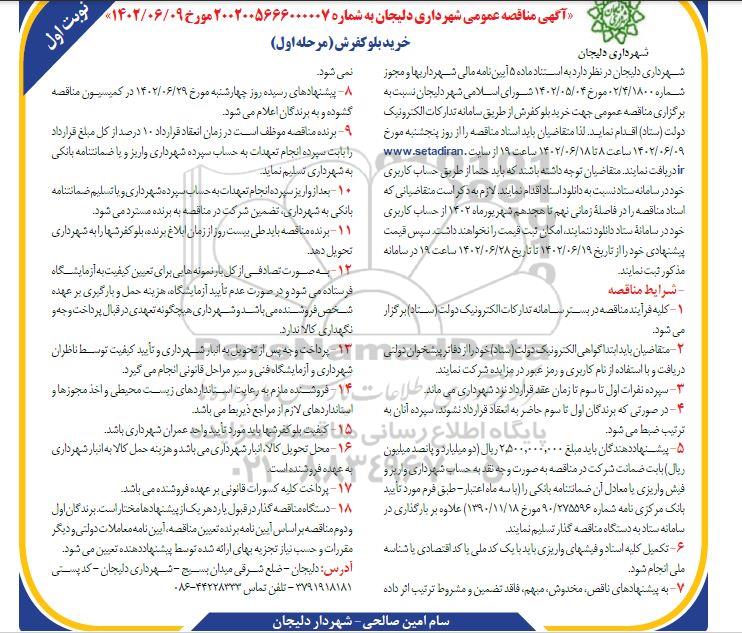 نوبت اول
«آگهی مناقصه عمومی شهرداری دلیجان به شماره ۲۰۰۲۰۰۵۶۶۶۰۰۰۰۰۷ مورخ ۱۴۰۲/۰۶/۰۹»
خرید بلوکفرش (مرحله اول)
شهرداری دلیجان
شهرداری دلیجان در نظر دارد به استناد ماده ۵ آیین نامه مالی شهرداریها و مجوز
شماره ۰۲/۴/۱۸۰۰ مورخ ۱۴۰۲/۰۵/۰۴ شورای اسلامی شهر دلیجان نسبت به
برگزاری مناقصه عمومی جهت خرید بلوکفرش از طریق سامانه تدارکات الکترونیک
دولت (ستاد) اقدام نمایید. لذا متقاضیان باید اسناد مناقصه را از روز پنجشنبه مورخ
۱۴۰۲/۰۶/۰۹ ساعت ۸ تا ۱۴۰۲/۰۶/۱۸ ساعت ۱۹ از سایت www.setadiran.
ir دریافت نمایند. متقاضیان توجه داشته باشند که باید حتما از طریق حساب کاربری
خود در سامانه ستاد نسبت به دانلود اسناد اقدام نمایند. لازم به ذکر است متقاضیانی که
اسناد مناقصه را در فاصلۀ زمانی نهم تا هجدهم شهریورماه ۱۴۰۲ از حساب کاربری
خود در سامانۀ ستاد دانلود ننمایند، امکان ثبت قیمت را نخواهند داشت. سپس قیمت
پیشنهادی خود را از تاریخ ۱۴۰۲/۰۶/۱۹ تا تاریخ ۱۴۰۲/۰۶/۲۸ ساعت ۱۹ در سامانه
مذکور ثبت نمایند.
- شرایط مناقصه
۱- کلیه فرآیند مناقصه در بستر سامانه تدارکات الکترونیک دولت (ستاد) برگزار
می شود.
۲- متقاضیان باید ابتدا گواهی الکترونیک دولت (ستاد) خود را از دفاتر پیشخوان دولتی
دریافت و با استفاده از نام کاربری و رمز عبور در مزایده شرکت نمایند.
۳- سپرده نفرات اول تا سوم تا زمان عقد قرارداد نزد شهرداری می ماند.
۴- در صورتی که برندگان اول تا سوم حاضر به انعقاد قرارداد نشوند، سپرده آنان به
ترتیب ضبط می شود.
۵- پیشنهاددهندگان باید مبلغ ۲,۵۰۰,۰۰۰,۰۰۰ ریال (دو میلیارد و پانصد میلیون
ریال) بابت ضمانت شرکت در مناقصه به صورت وجه نقد به حساب شهرداری واریز و
فیش واریزی یا معادل آن ضمانتنامه بانکی را (با سه ماه اعتبار - طبق فرم مورد تأیید
بانک مرکزی نامه شماره ۹۰/۲۷۵۵۹۶ مورخ ۱۳۹۰/۱۱/۱۸) علاوه بر بارگذاری در
سامانه ستاد به دستگاه مناقصه گذار تسلیم نمایند.
۶- تکمیل کلیه اسناد و فیشهای واریزی باید با یک کد ملی یا کد اقتصادی یا شناسه
ملی انجام شود.
۷- به پیشنهادهای ناقص، مخدوش، مبهم، فاقد تضمین و مشروط ترتیب اثر داده
نمی شود.
۸- پیشنهادهای رسیده روز چهارشنبه مورخ ۱۴۰۲/۰۶/۲۹ در کمیسیون مناقصه
گشوده و به برندگان اعلام می شود.
۹- برنده مناقصه موظف است در زمان انعقاد قرارداد ۱۰ درصد از کل مبلغ قرارداد
را بابت سپرده انجام تعهدات به حساب سپرده شهرداری واریز و یا ضمانتنامه بانکی
به شهرداری تسلیم نماید.
۱۰- بعد از واریز سپرده انجام تعهدات به حساب سپرده شهرداری و یا تسلیم ضمانتنامه
بانکی به شهرداری، تضمین شرکت در مناقصه به برنده مسترد می شود.
۱۱- برنده مناقصه باید طی بیست روز از زمان ابلاغ برنده، بلوکفرشها را به شهرداری
تحویل دهد.
۱۲- به صورت تصادفی از کل بار نمونه هایی برای تعیین کیفیت به آزمایشگاه
فرستاده می شود و در صورت عدم تأیید آزمایشگاه، هزینه حمل و بارگیری بر عهده
شخص فروشنده می باشد و شهرداری هیچگونه تعهدی در قبال پرداخت وجه و
نگهداری کالا ندارد.
۱۳- پرداخت وجه پس از تحویل به انبار شهرداری و تأیید کیفیت توسط ناظران
شهرداری و آزمایشگاه فنی و سیر مراحل قانونی انجام می گیرد.
۱۴- فروشنده ملزم به رعایت استانداردهای زیست محیطی و اخذ مجوزها و
استانداردهای لازم از مراجع ذیربط می باشد.
۱۵- کیفیت بلوکفرشها باید مورد تأیید واحد عمران شهرداری باشد.
۱۶- محل تحویل کالا، انبار شهرداری می باشد و هزینه حمل کالا به انبار شهرداری
به عهده فروشنده است.
۱۷- پرداخت کلیه کسورات قانونی بر عهده فروشنده می باشد.
۱۸- دستگاه مناقصه گذار در قبول یا رد هر یک از پیشنهادها مختار است. برندگان اول
و دوم مناقصه بر اساس آیین نامه برنده تعیین مناقصه، آیین نامه معاملات دولتی و دیگر
مقررات و حسب نیاز تجزیه بهای ارائه شده توسط پیشنهاددهنده تعیین می شود.
آدرس: دلیجان - ضلع شرقی میدان بسیج - شهرداری دلیجان - کد پستی
۳۷۹۱۹۱۸۱۸۱ - تلفن تماس ۴۴۲۲۸۳۳۳-۰۸۶
سام امین صالحی - شهردار دلیجان
ParsNamadData
پایگاه اطلاع رسانی